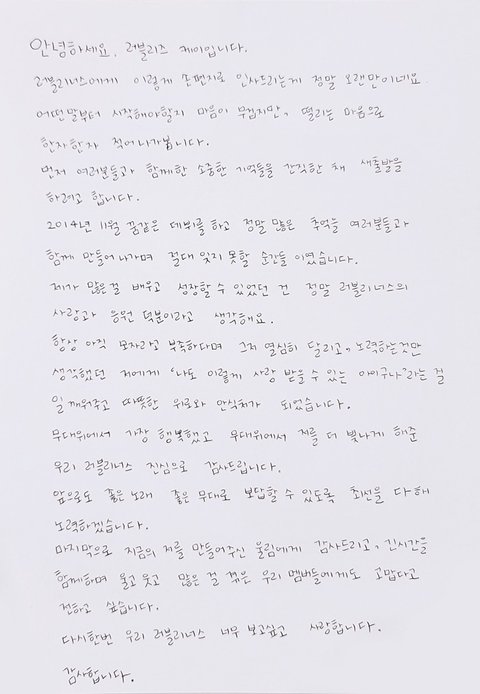 안녕하세요, 러블리즈 케이입니다.
러블리너스에게 이렇게 손편지로 인사드리는게 정말 오랜만이네요.
어떤말부터 시작해야할지 마음이 무겁지만, 떨리는 마음으로
한자한자 적어나가봅니다.
먼저 여러분들과 함께한 소중한 기억들을 간직한 채 새출발을
하려고 합니다.
2014년 11월 꿈같은 데뷔를 하고 정말 많은 추억을 여러분들과
함께 만들어나가며 절대 잊지 못할 순간들 이였습니다.
제가 많은걸 배우고 성장할 수 있었던 건 정말 러블리너스의
사랑과 응원 덕분이라고 생각해요.
항상 아직 모자라고 부족하다며 그저 열심히 달리고, 노력하는것만
생각했던 저에게 '나도 이렇게 사랑 받을 수 있는 아이구나'라는 걸
일깨워주고 따뜻한 위로와 안식처가 되었습니다.
무대위에서 가장 행복했고 무대위에서 저를 더 빛나게 해준
우리 러블리너스 진심으로 감사드립니다.
앞으로도 좋은노래 좋은무대로 보답할 수 있도록 최선을 다해
노력하겠습니다.
마지막으로 지금의 저를 만들어주신 울림에게 감사드리고, 긴시간을
함께하며 울고 웃고 많은 걸 겪은 우리 멤버들에게도 고맙다고
전하고 싶습니다.
다시한번 우리 러블리너스 너무 보고싶고 사랑합니다.
감사합니다.